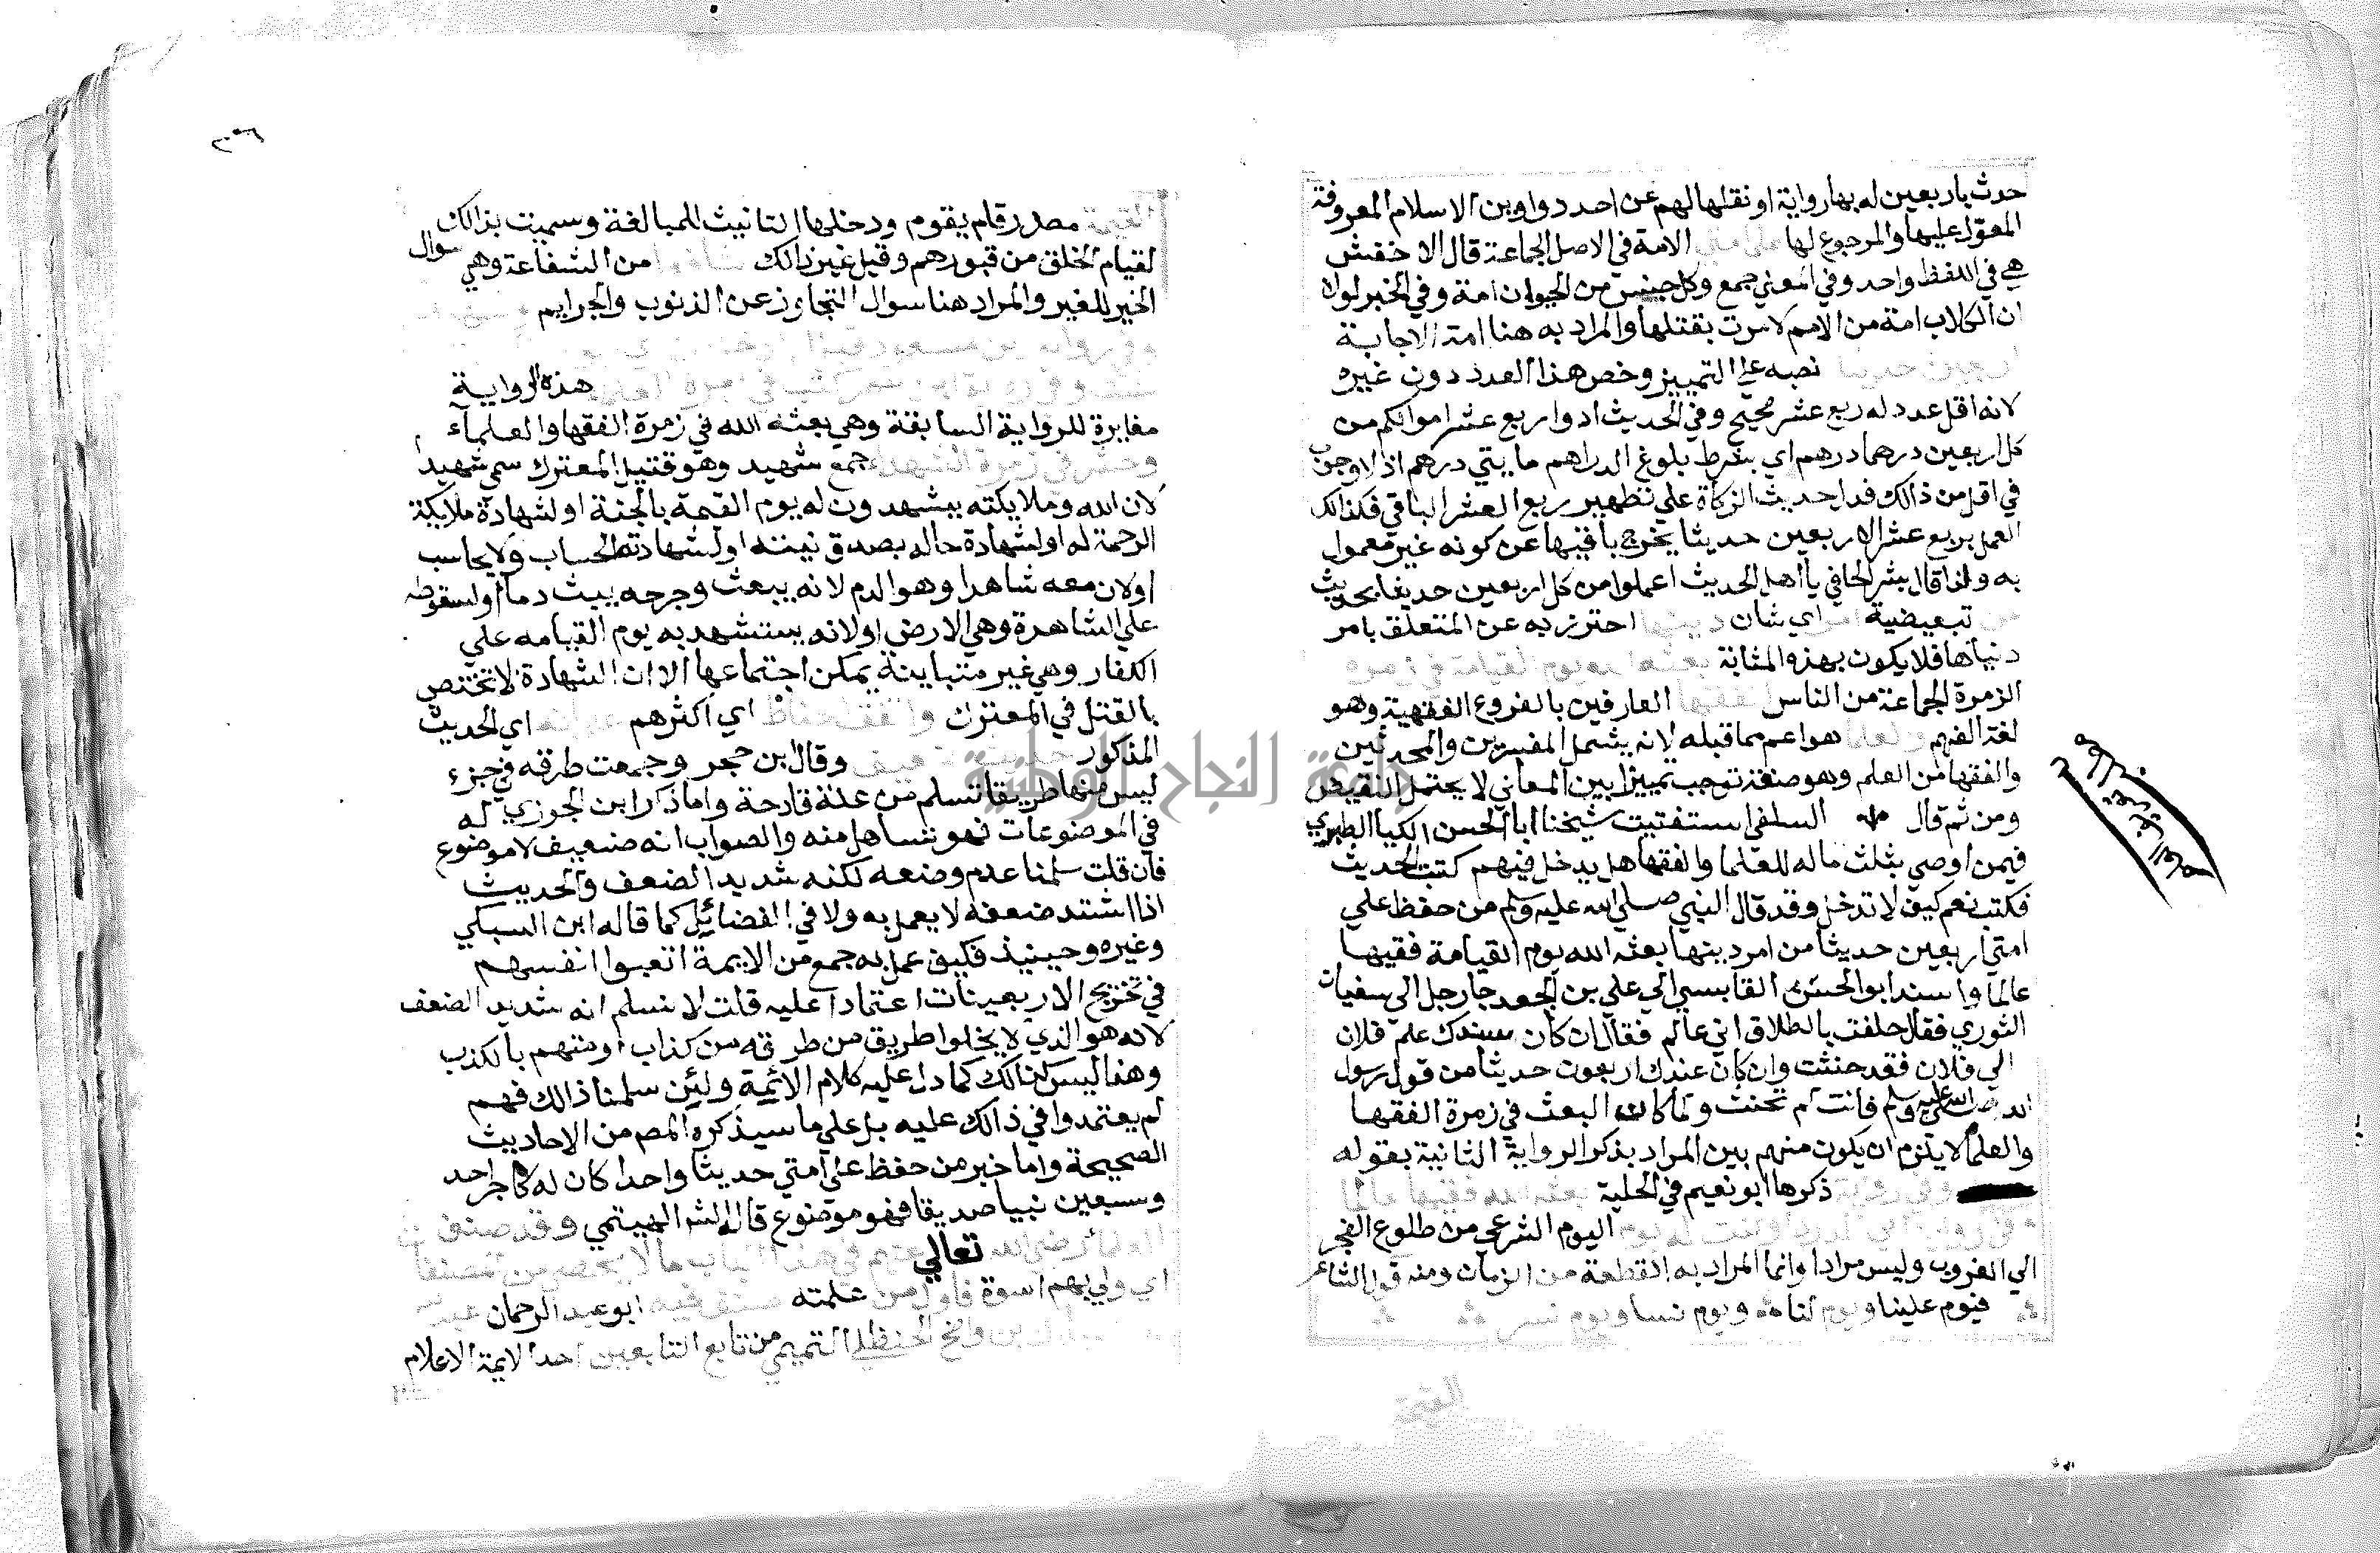 حدث باربعين له بها رواية او نقلها لهم عن احد دواوين الاسلام المعروفة
المعوّل عليها والمرجوع لها على امتي الامة في الاصل الجماعة قال الاخفش
هي في اللفظ واحد وفي المعني جمع وكل جنس من الحيوان امة وفي الخبر لولا
ان الكلاب امة من الامم لامرت بقتلها والمراد به هنا امة الاجابة
اربعين حديثا نصبه علي التمييز وخص هذا العدد دون غيره
لانه اقل عدد له ربع عشر صحيح وفي الحديث ادوا ربع عشر اموالكم من
كل اربعين درهما درهم اي بشرط بلوغ الدراهم مايتي درهم اذ لا وجوب
في اقل من ذالك فدل حديث الزكاة علي تطهير ربع العشر الباقي فكذالك
العمل بربع عشر الاربعين حديثا يخرج باقيها عن كونه غير معمول
به ولذا قال بشر الحافي يا اهل الحديث اعملوا من كل اربعين حديثا بحديث
من تبعيضية امر اي شان دينها احترز به عن المتعلق بامر
دنياها فلا يكون بهذه المثابة بعثه الله يوم القيامة في زمرة
الزمرة الجماعة من الناس الفقها العارفين بالفروع الفقهية وهو
لغة الفهم والعلما هو اعم مما قبله لانه يشمل المفسرين والمحدثين
والفقها من العلم وهو صفة توجب تمييزا بين المعاني لا يحتمل النقيض
ومن ثم قال السلفي استفتيت شيخنا ابا الحسن الكيا الطبري
فيمن اوصي بثلث ماله للعلما والفقها هل يدخل فيهم كتبة الحديث
فكتب نعم كيف لا تدخل وقد قال النبي صلي الله عليه وسلم من حفظ علي
امتي اربعين حديثا من امر دينها بعثه الله يوم القيامة فقيها
عالما واسند ابو الحسن القابسي الي علي بن الجعد جا رجل الي سفيان
الثوري فقال حلفت بالطلاق اني عالم فقال ان كان عندك علم فلان
الي فلان فقد حنثت وان كان عندك اربعون حديثا من قول رسول
الله صلي الله عليه وسلم فانت لم تحنث ولما كان البعث في زمرة الفقها
والعلما لا يلزم ان يكون منهم بين المراد بذكر الرواية الثانية بقوله
وفي رواية ذكرها ابو نعيم في الحلية بعثه الله فقيها عالما
وفي رواية ابي الدردا وكنت له يوم اليوم الشرعي من طلوع الفجر
الي الغروب وليس مرادا وانما المراد به القطعة من الزمان ومنه قول الشاعر
فيوم علينا ويوم لنا ويوم نسا ويوم نسر
القيمة
القيمة مصدر قام يقوم ودخلها التانيث للمبالغة وسميت بذالك
لقيام الخلق من قبورهم وقيل غير ذالك شافعا من الشفاعة وهي سوال
الخير للغير والمراد هنا سوال التجاوز عن الذنوب والجرايم
وفي رواية بن مسعود
وفي رواية ابن عمر كتب في زمرة العلما هذه الرواية
مغايرة للرواية السابقة وهي بعثه الله في زمرة الفقها والعلماء
وحشر في زمرة الشهدا جمع شهيد وهو قتيل المعترك سمي شهيد
لان الله وملايكته يشهدون له يوم القيمة بالجنة او لشهادة ملايكة
الرحمة له او لشهادة حاله بصدق نيته او لشهادته الحساب ولا يحاسب
او لان معه شاهدا وهو الدم لانه يبعث وجرحه يبث دما او لسقوطه
علي الشاهدة وهي الارض او لانه يستشهد به يوم القيامه علي
الكفار وهي غير متباينة يمكن اجتماعها الا ان الشهادة لا تختص
بالقتل في المعترك واتفق الحفاظ اي اكثرهم علي انه اي الحديث
المذكور حديث ضعيف وقال ابن حجر وجمعت طرقه في جزء
ليس منها طريقا تسلم من علة قادحة واما ذكر ابن الجوزي له
في الموضوعات فهو تساهل منه والصواب انه ضعيف لا موضوع
فان قلت سلمنا عدم وضعه لكنه شديد الضعف والحديث
اذا اشتد ضعفه لا يعمل به ولا في الفضائل كما قاله ابن السبكي
وغيره وحينيذ فكيف عمل به جمع من الايمة اتعبوا انفسهم
في تخريج الاربعينات اعتمادا عليه قلت لا نسلم انه شديد الضعف
لانه هو الذي لا يخلوا طريق من طرقه من كذاب او متهم بالكذب
وهذا ليس كذالك كما دل عليه كلام الائمة ولئن سلمنا ذالك فهم
لم يعتمدوا في ذالك عليه بل علي ما سيذكره المص من الاحاديث
الصحيحة واما خبر من حفظ علي امتي حديثا واحدا كان له كاجر احد
وسبعين نبيا صديقا فهو موضوع قاله الهيتمي وقد صنف
العلما رضي الله تعالي عنهم في هذا الباب ما لا يحصي من المصنفات
اي ولي بهم اسوة فاول من علمته صنف فيه ابو عبد الرحمان عبد
بن واضح الحنظلي التميمي من تابع التابعين احد الايمة الاعلام
جامعة النجاح الوطنية